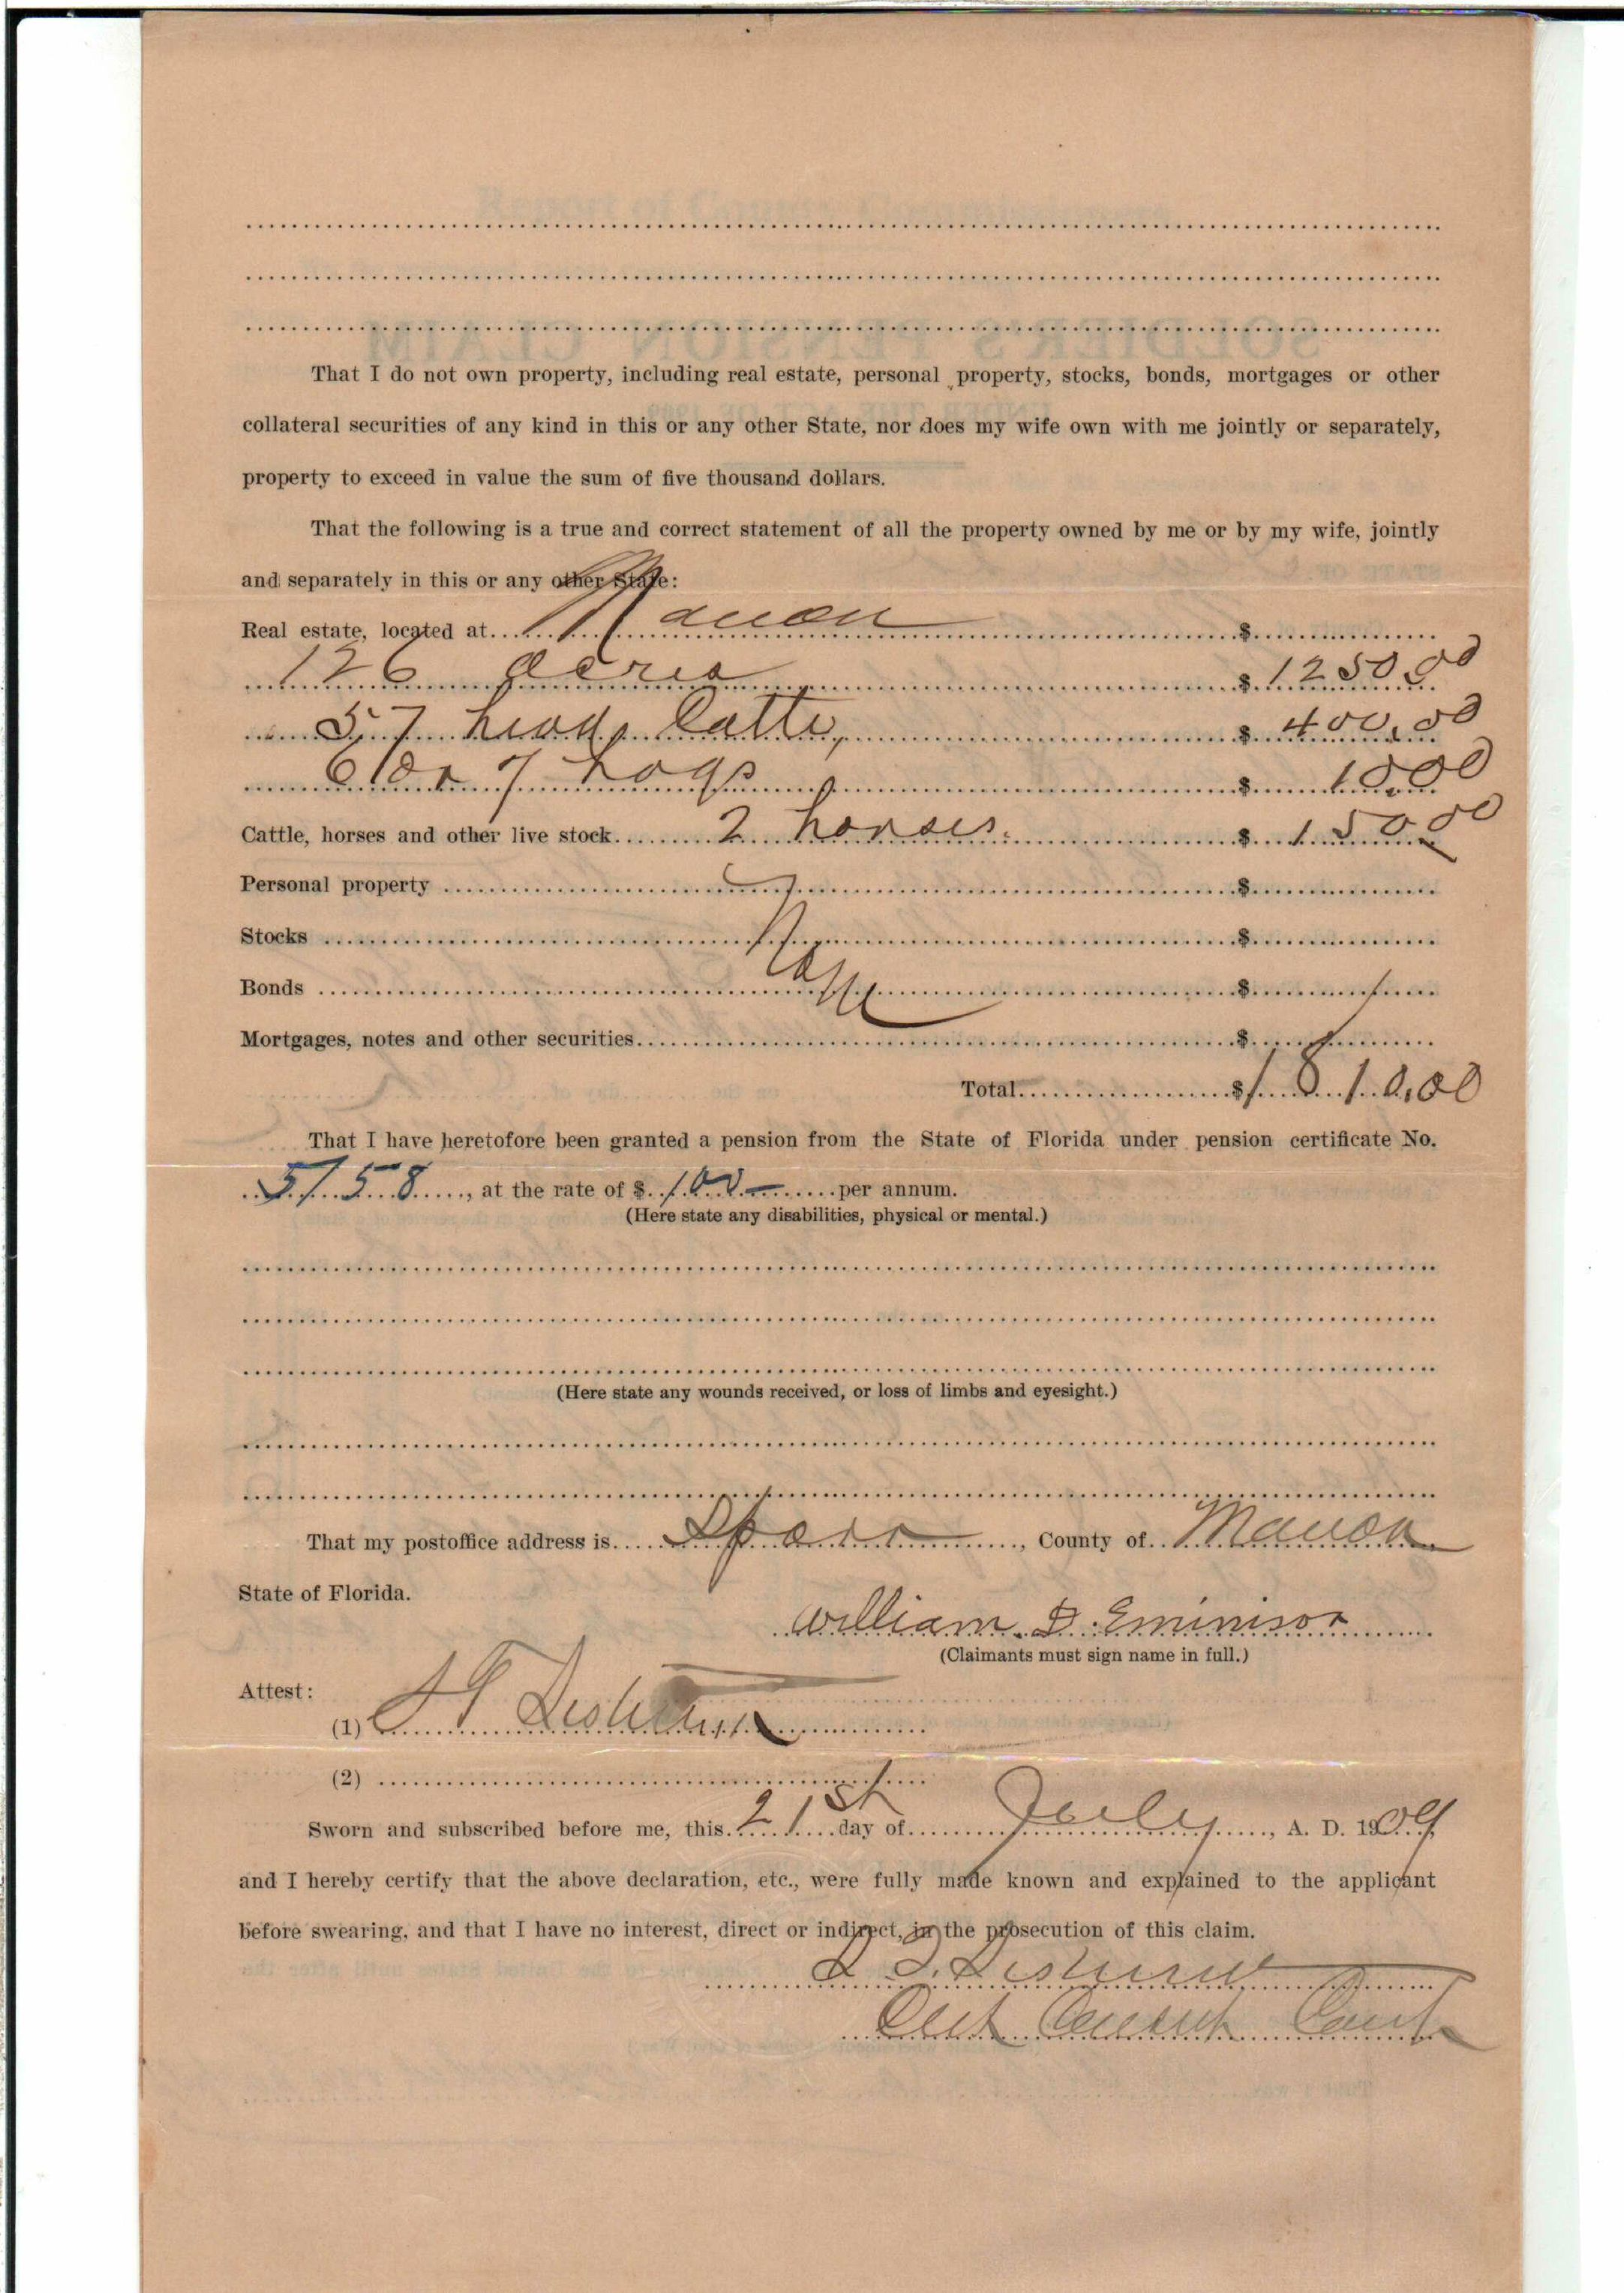 That I do not own property, including real estate, personal property, stocks, bonds, mortgages or other
collateral securities of any kind in this or any other State, nor does my wife own with me jointly or separately,
property to exceed in value the sum of five thousand dollars.
That the following is a true and correct statement of all the property owned by me or by my wife, jointly
and separately in this or any other State:
Real estate, located at Marion $
126 acres $ 1250.00
57 head Cattle, $ 400.00
6 or 7 hogs $ 10.00
Cattle, horses and other live stock 2 horses. $ 150.00
Personal property $
Stocks $
None
Bonds $
Mortgages, notes and other securities $
Total $ 1810.00
That I have heretofore been granted a pension from the State of Florida under pension certificate No.
5158, at the rate of $ 100 — per annum.
(Here state any disabilities, physical or mental.)
(Here state any wounds received, or loss of limbs and eyesight.)
That my postoffice address is Sparr, County of Marion
State of Florida.
William D. Eminisor
(Claimants must sign name in full.)
Attest:
(1)
(2)
Sworn and subscribed before me, this 21st day of July, A. D. 1909,
and I hereby certify that the above declaration, etc., were fully made known and explained to the applicant
before swearing, and that I have no interest, direct or indirect, in the prosecution of this claim.
Clerk Circuit Court